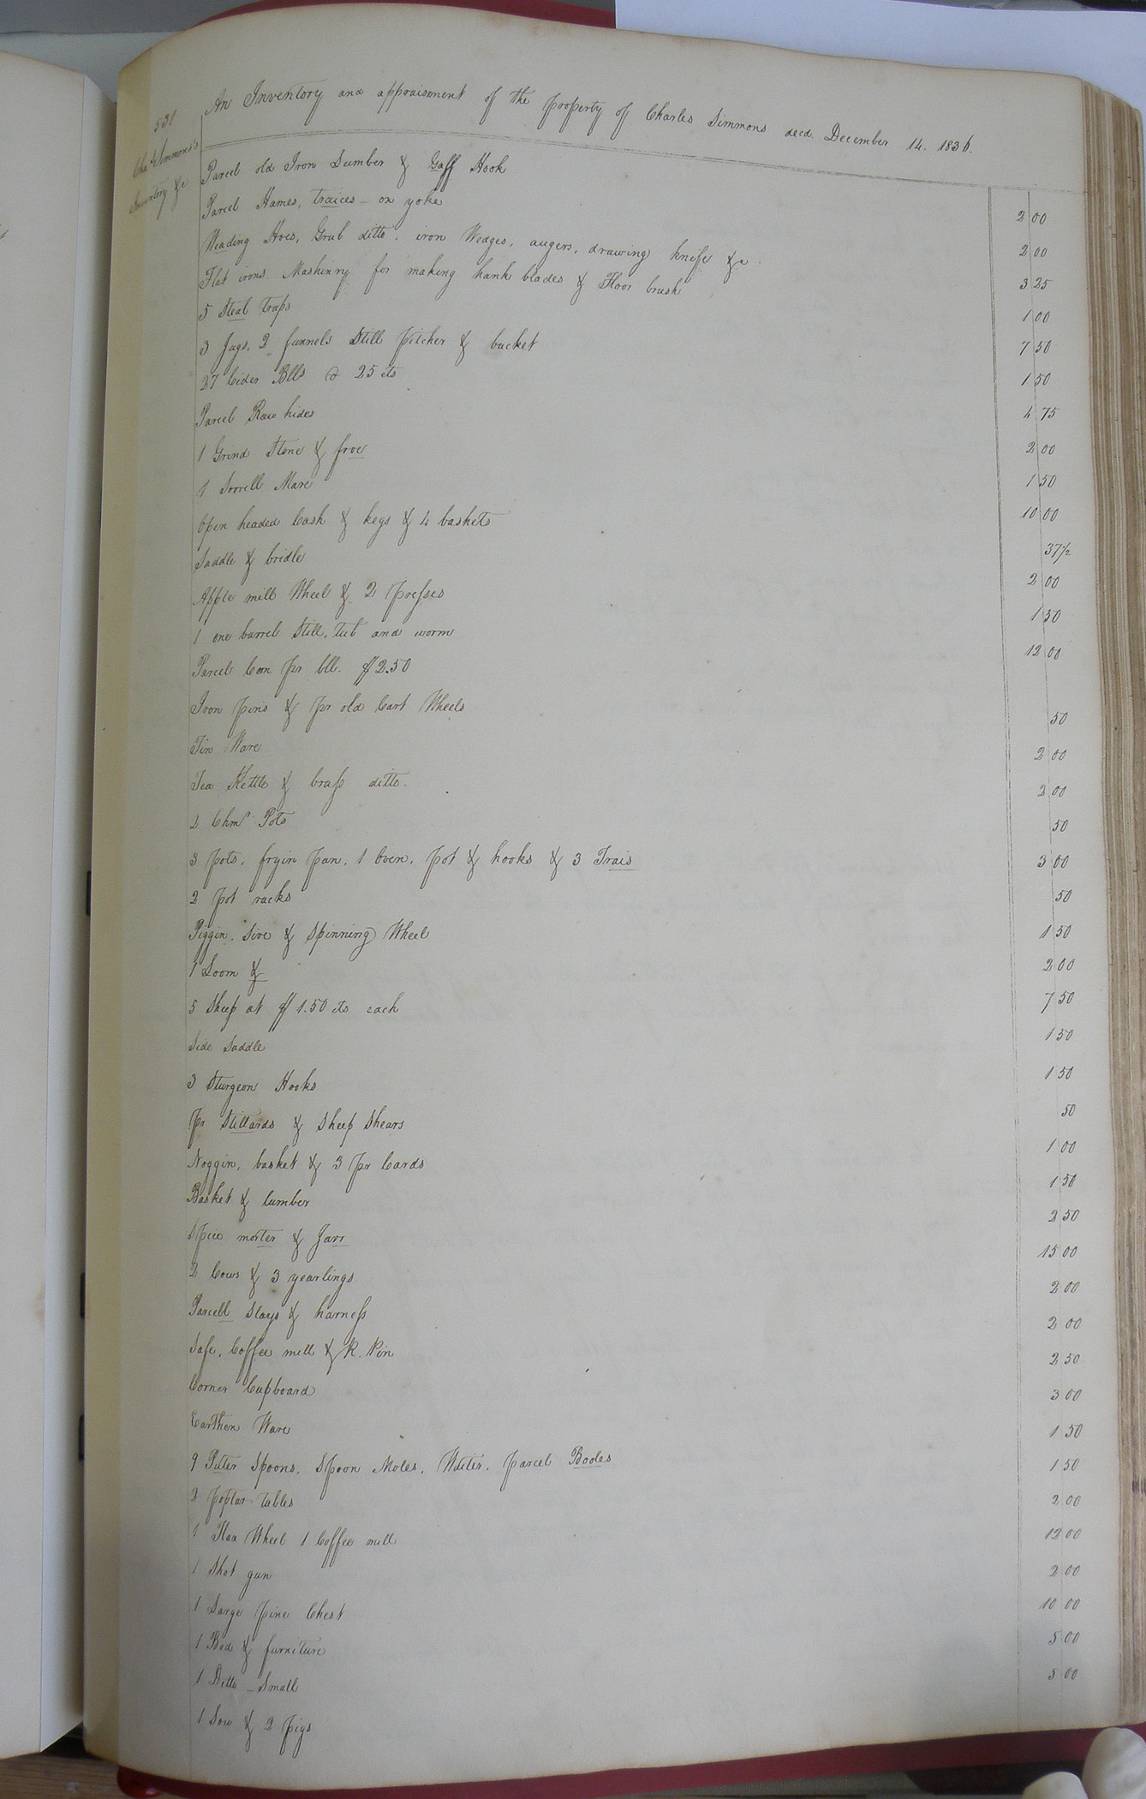 531
Chas Simmons's
Inventory &c
An Inventory and appraisement of the property of Charles Simmons decd. December 14. 1836.
Parcel old Iron Lumber & Gaff Hook 2 00
Parcel Hames, traices - ox yoke 2 00
Weading Hoes, Grub ditto. iron Wedges, augers, drawing knife &c. 3 25
Flat irons. Mashinry for making hank blades & Floor brush 1 00
5 Steal traps 7 50
3 Jugs, 2 funnels Still pitcher & bucket 1 50
27 Cider Blls @ 25 cts 4 75
Parcel Raw hides 2 00
1 Grind Stone & froe 1 50
1 Sorrell Mare 10 00
Open headed Cask & kegs & 4 baskets 37½
Saddle & bridle 2 00
Apple mill Wheel & 2 presses 1 50
1 one barrel Still, tub and worm 12 00
Parcel Corn pr bll. $2.50
Iron pins & pr old Cart Wheels 50
Tin Ware 2 00
Tea Kettle & brass ditto. 2 00
2 Chmr Pots 50
3 pots, fryin pan, 1 oven, pot & hooks & 3 Trais 3 00
2 pot racks 50
Piggin, Sive & Spinning Wheel 1 50
1 Loom & 2 00
5 Sheep at $1.50 cts each 7 50
Side Saddle 1 50
3 Sturgeon Hooks 1 50
pr Stillards & Sheep Shears 50
Noggin, basket & 3 pr Cards 1 00
Basket & lumber 1 50
Spice morter & Jarr 2 50
2 Cows & 3 yearlings 15 00
Parcell Slays & harness 2 00
Safe, Coffee mill & R. Pin 2 00
Corner Cupboard 2 50
Earthen Ware 3 00
9 Puter Spoons, Spoon Moles, Waiter, parcel Booles 1 50
2 poplar tables 1 50
1 Flax Wheel 1 Coffee mill 2 00
1 Shot gun 12 00
1 Large pine Chest 2 00
1 Bed & furniture 10 00
1 Ditto - Small 5 00
1 Sow & 2 pigs 5 00